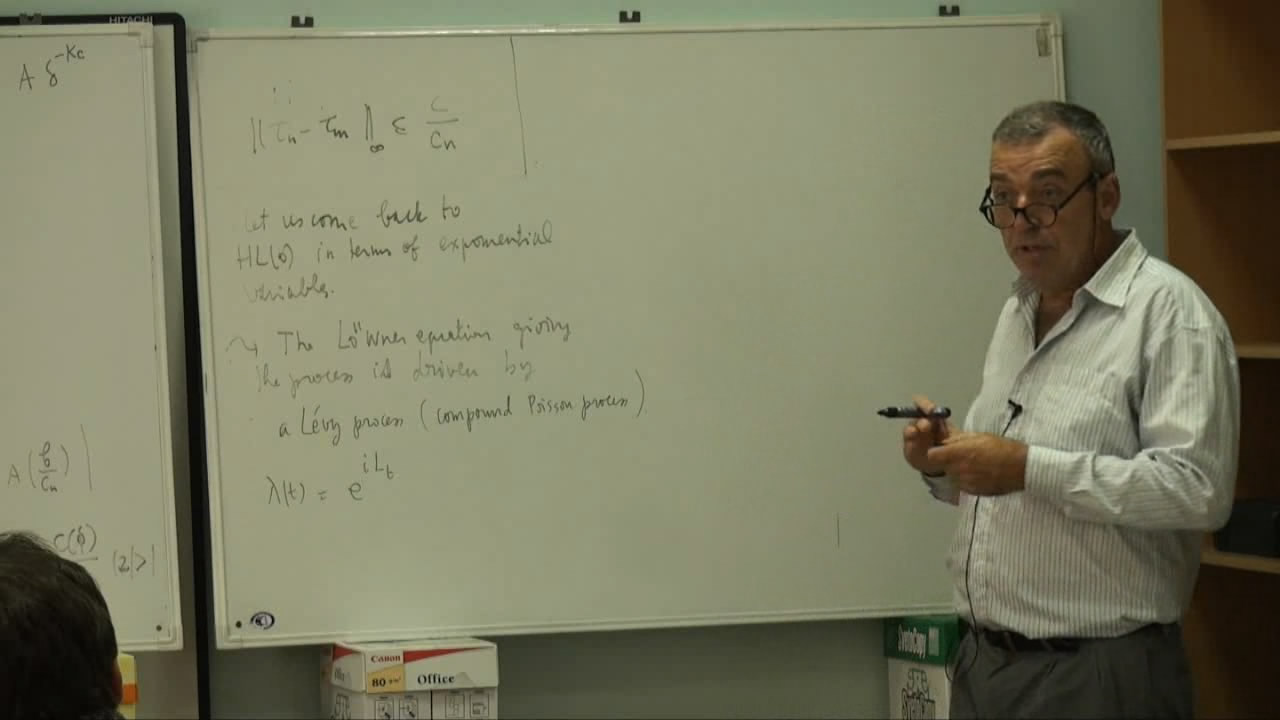 HITACHI
A δ^-Kc
A (6/Cn) |
C(ϕ) |z|>1
‖τn - τm‖∞ ≤ C/Cn
Let us come back to
HL(0) in terms of exponential
variables.
↝ The Löwner equation giving
the process is driven by
a Lévy process (compound Poisson process)
λ(t) = e^iLt
Canon
80 Office